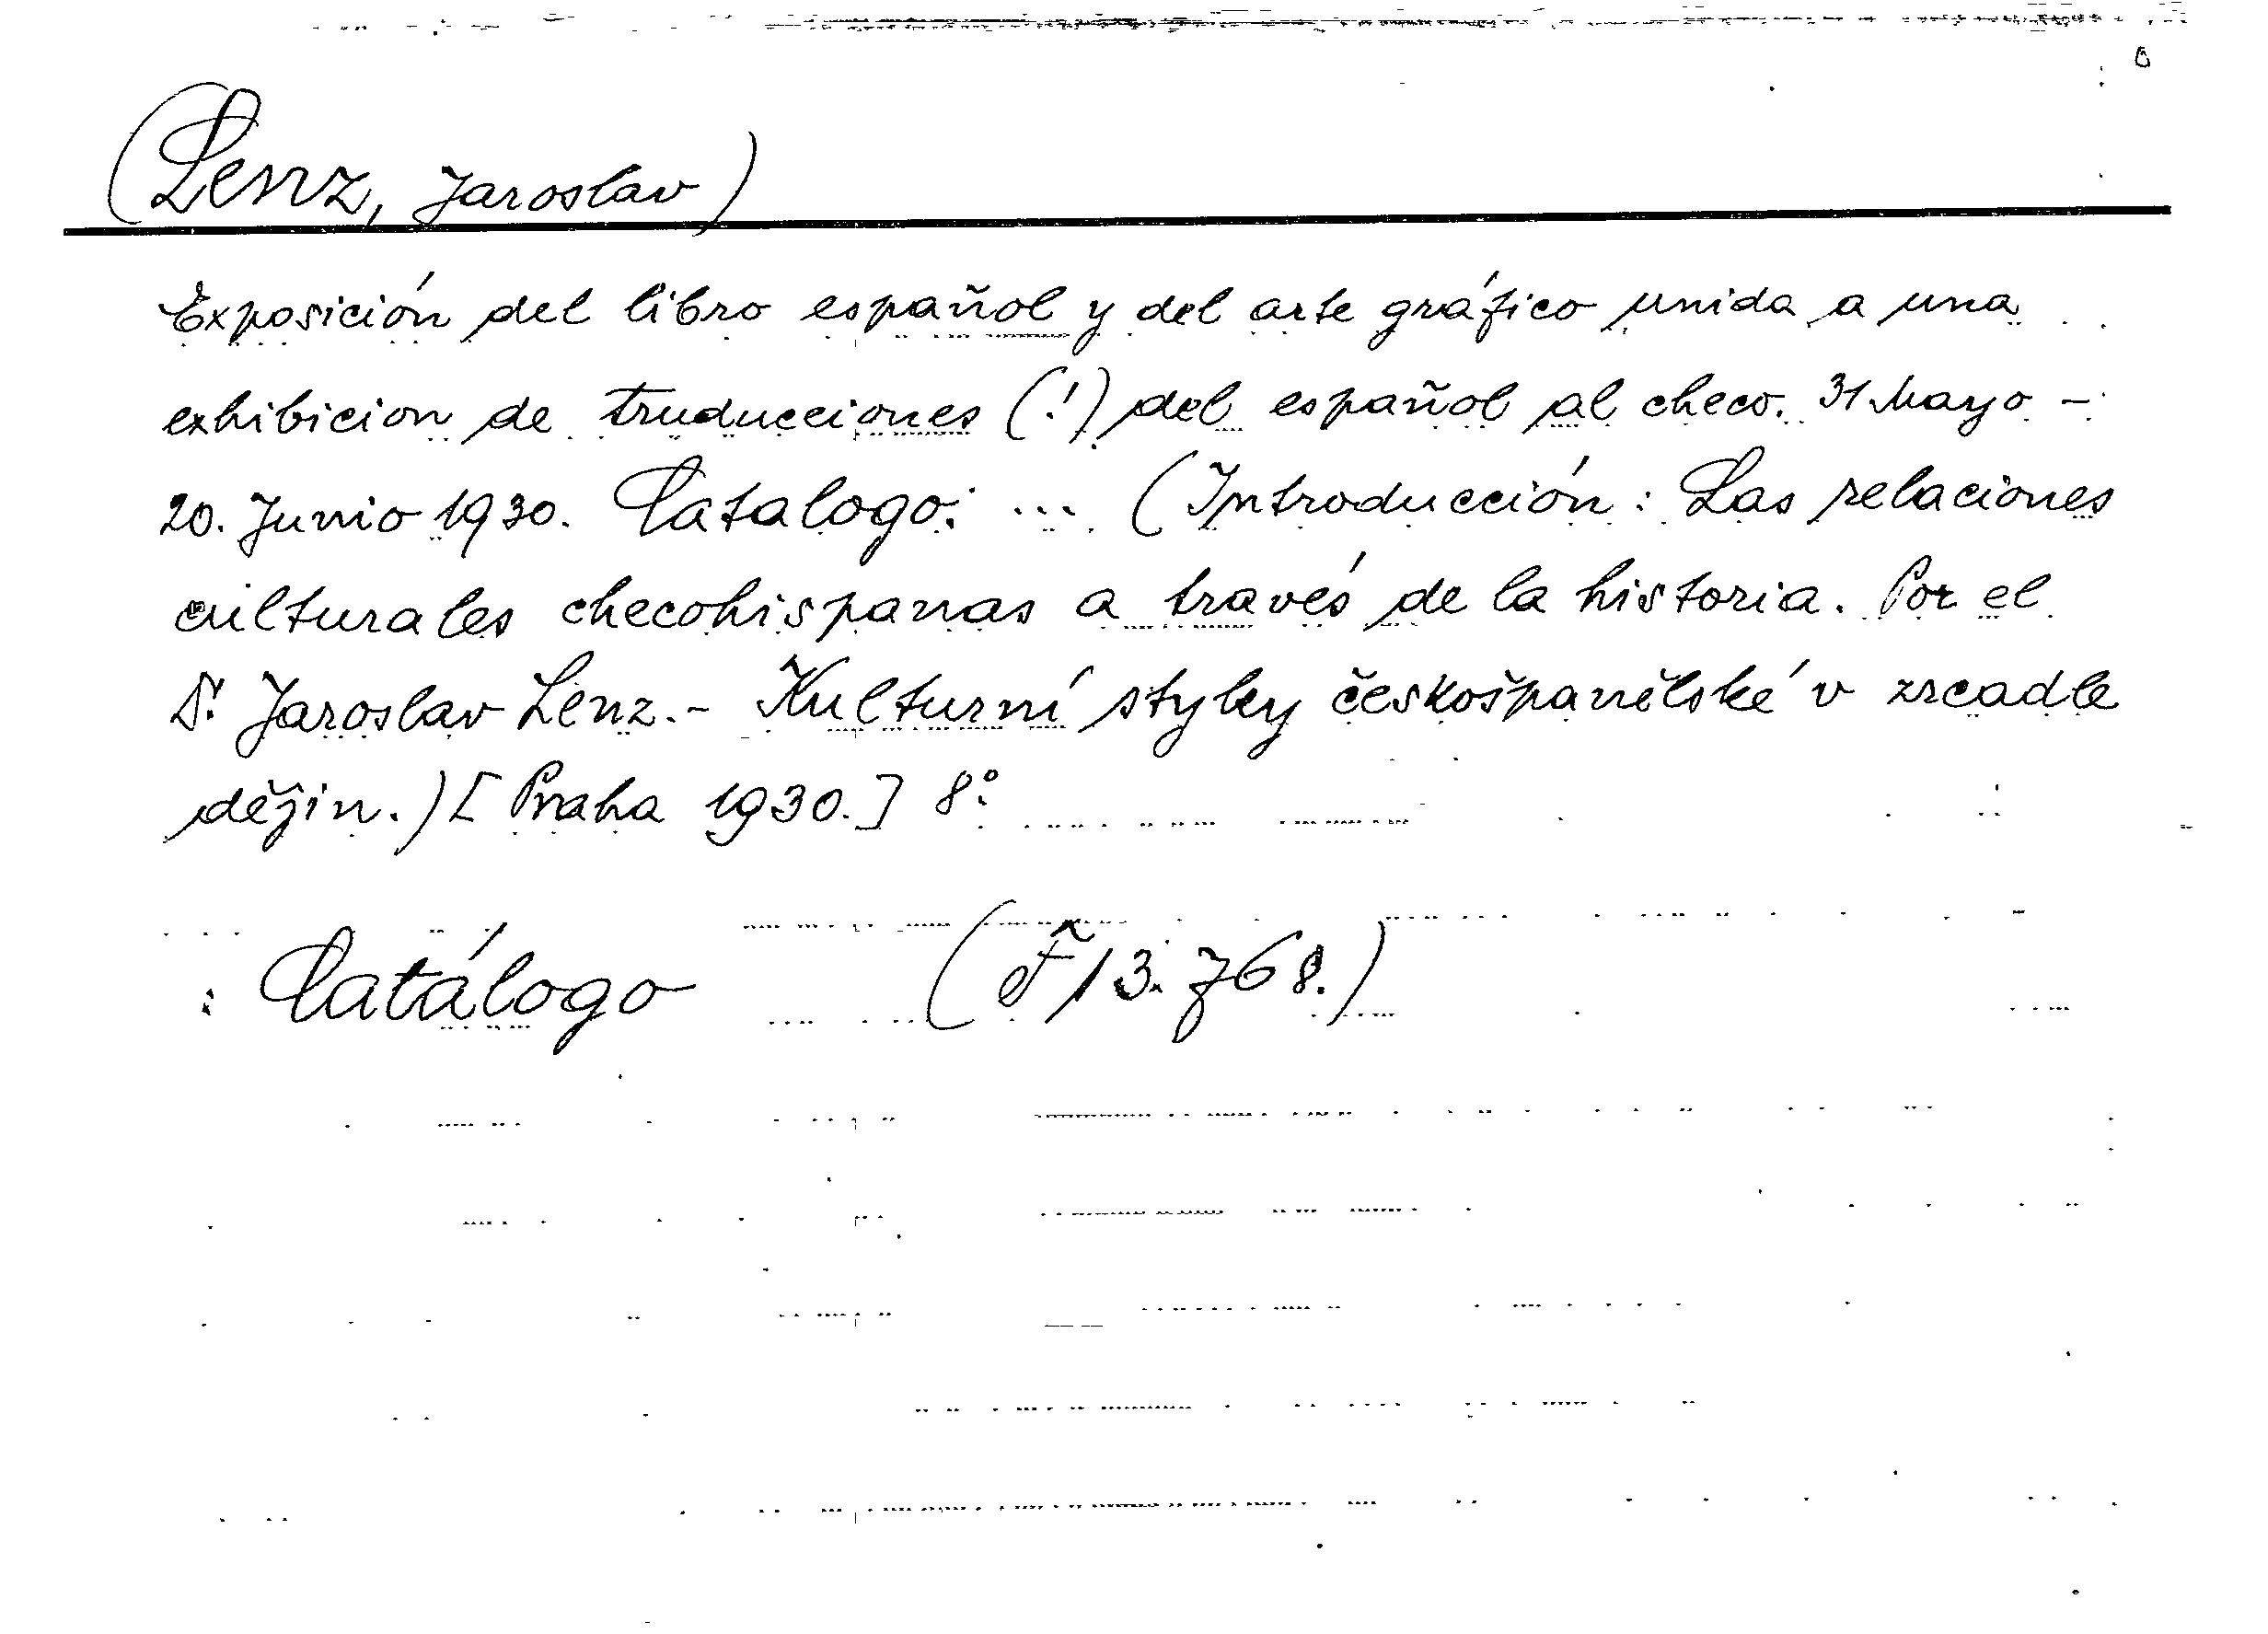 (Lenz, Jaroslav)
Exposición del libro español y del arte gráfico unida a una
exhibicion de truducciones (!) del español al checo. 31 Mayo -
20. Junio 1930. Catalogo: ... (Introducción: Las relaciones
culturales checohispanas a través de la historia. Por el
Dr. Jaroslav Lenz.- Kulturní styky českošpanělské v zrcadle
dějin.) [Praha 1930.] 8°.
: Catálogo (F 13.768.)